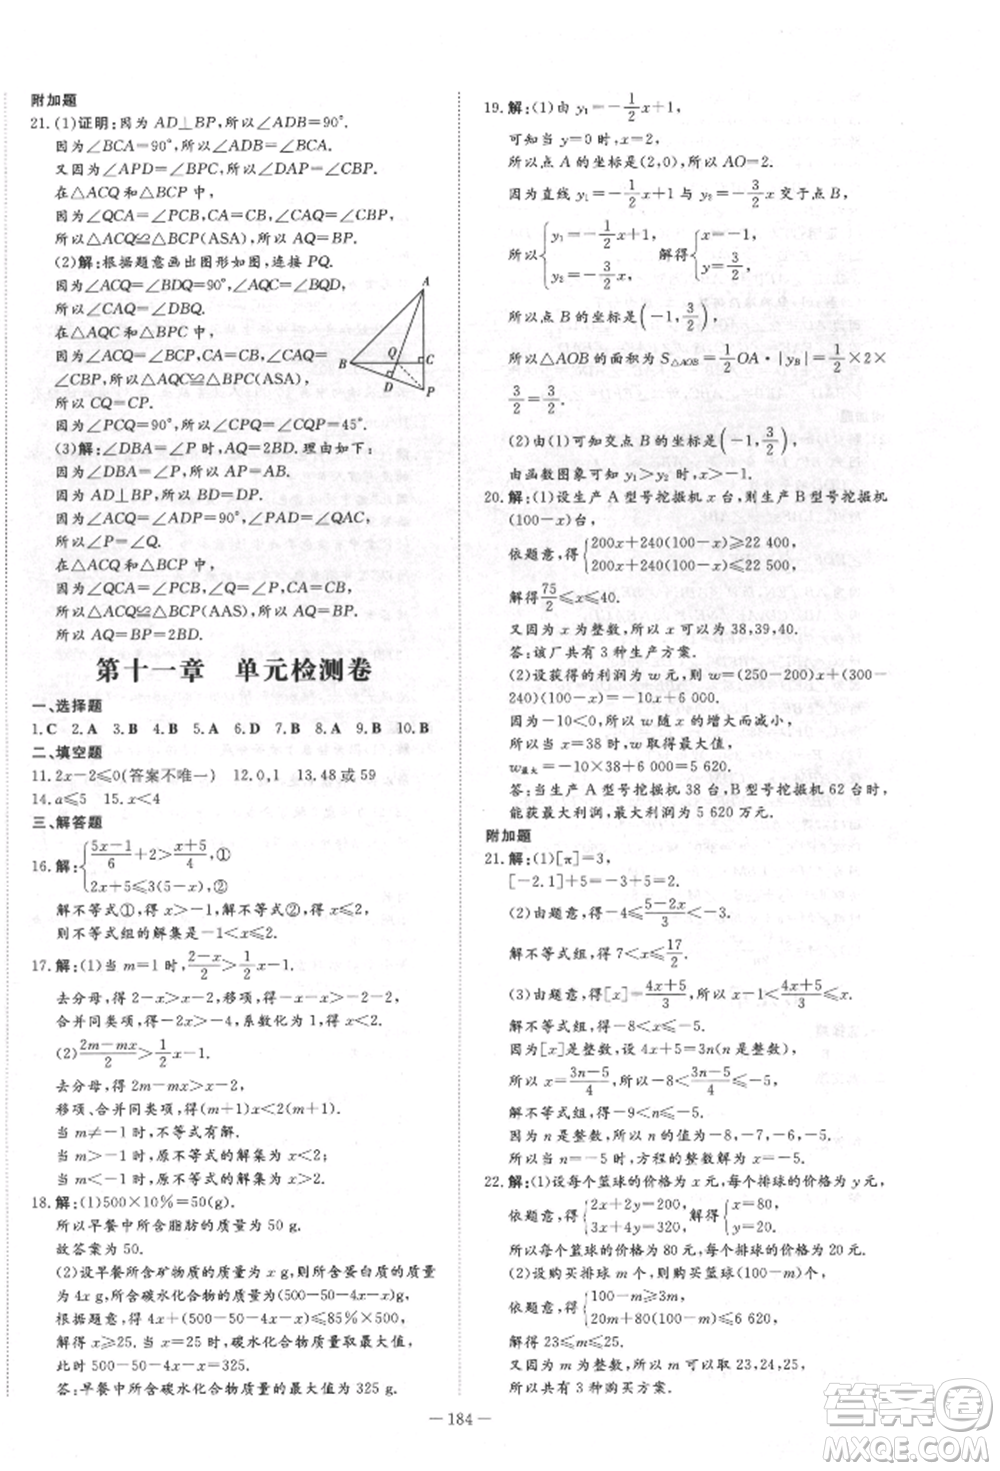 附加题
21.(1)证明:因为 AD⊥BP,所以∠ADB=90°.
因为∠BCA=90°,所以∠ADB=∠BCA.
又因为∠APD=∠BPC,所以∠PBC=∠PAD.
在△ACQ 和△BCP 中,
因为∠QCA=∠PCB,CA=CB,∠CAQ=∠PBC,
所以△ACQ≌△BCP(ASA).
(2)解:根据题意画出图形如图,连接 PQ.
因为∠ACQ=∠BDQ=90°,∠AQC=∠BQD,
所以∠CAQ=∠DBQ.
在△ACQ 和△BPC 中,
因为∠QCA=∠PCB,
CA=CB,
∠CAQ=∠PBC,
所以△ACQ≌△BPC(ASA).
所以 CQ=CP.
因为∠PCQ=90°,所以∠CQP=45°.
(3)解:∠DBA=∠P,AQ=2BD.理由如下:
因为∠DBA=∠P,所以 AP=AB.
因为 AD⊥BP,所以 BD=DP.
因为∠ADP=∠ACQ=90°,∠PAD=∠QAC,
所以∠P=∠Q.
因为∠QCA=∠PCB=90°,∠Q=∠P,AC=BC,
所以△ACQ≌△BCP(AAS).
所以 AQ=BP=2BD.
A
B
Q
C
D
P
第十一章 单元检测卷
一、选择题
1.C 2.A 3.B 4.B 5.A 6.D 7.B 8.A 9.B 10.B
二、填空题
11.2x-2≤0(答案不唯一) 12.0,1 13.48 或 59
14.a≤5 15.x<4
三、解答题
16.解:{(5x-1)/6+2>(x+5)/4,①
2x+5≤3(5-x),②
解不等式①,得 x>-1,解不等式②,得 x≤2,
则不等式组的解集是-1<x≤2.
17.解:(1)当 m=1 时,(2-x)/2>1/2x-1.
去分母,得 2-x>x-2,移项,得-x-x>-2-2,
合并同类项,得-2x>-4,系数化为1,得 x<2.
(2)(2m-mx)/2>1/2x-1,
去分母,得 2m-mx>x-2,
移项、合并同类项,得(m+1)x<2(m+1).
当 m≠-1 时,不等式有解.
当 m>-1 时,原不等式的解集为 x<2;
当 m<-1 时,原不等式的解集为 x>2.
18.解:(1)500×10%=50(g).
所以早餐中所含脂肪的质量为 50 g.
故答案为 50.
(2)设早餐所含矿物质的质量为 x g,所含蛋白质的质
量为 4x g,所含碳水化合物的质量为(500-50-5x)g.
根据题意,得 4x+(500-50-4x-x)≤85%×500,
解得 x≥25.当 x=25 时,碳水化合物质量取最大值,
此时 500-50-4x-x=325.
答:早餐中所含碳水化合物的质量的最大值为 325 g.
19.解:(1)由 y₁=-1/2x+1,
可知当 y=0 时,x=2,
所以点 A 的坐标是(2,0),所以 AO=2.
因为直线 y₁=-1/2x+1 与 y₂=-3/2x 交于点 B,
所以{y₁=-1/2x+1, y₂=-3/2x, 解得{x=-1, y=3/2,
所以点 B 的坐标是(-1,3/2),
所以△AOB 的面积为 S△AOB=1/2OA·|yB|=1/2×2×
3/2=3/2.
(2)由(1)可知交点 B 的坐标是(-1,3/2),
由函数图象可知 y₁>y₂ 时,x>-1.
20.解:(1)设生产 A 型号挖掘机 x 台,则生产 B 型号挖掘机
(100-x)台,
依题意,得{200x+240(100-x)≥22 400,
200x+240(100-x)≤22 500,
解得75/2≤x≤40.
又因为 x 为整数,所以 x 可以为 38,39,40.
答:该厂共有 3 种生产方案.
(2)设获得的利润为 w 万元,则 w=(250-200)x+(300-
240)(100-x)=-10x+6 000,
因为-10<0,所以 w 随 x 的增大而减小,
所以当 x=38 时,w 取得最大值,
w最大=-10×38+6 000=5 620.
答:当生产 A 型号挖掘机 38 台,B 型号挖掘机 62 台时,
能获最大利润,最大利润为 5 620 万元.
附加题
21.解:(1)[π]=3,
[-2.1]+5=-3+5=2.
(2)由题意,得-4≤(5-2x)/3<-3,
解不等式组,得 7<x≤17/2.
(3)由题意,得[x]=(4x+5)/3,所以 x-1<(4x+5)/3≤x,
解不等式组,得-8<x≤-5.
因为[x]是整数,设 4x+5=3n(n 是整数),
所以 x=(3n-5)/4,所以-8<(3n-5)/4≤-5.
解不等式组,得-9<n≤-5.
因为 n 是整数,所以 n 的值为-8,-7,-6,-5.
所以当 n=-5 时,方程的整数解为 x=-5.
22.解:(1)设每个篮球的价格为 x 元,每个排球的价格为 y 元,
依题意,得{2x+2y=200, 3x+4y=320, 解得{x=80, y=20,
所以每个篮球的价格为 80 元,每个排球的价格为 20 元.
(2)设购买排球 m 个,则购买篮球(100-m)个.
依题意,得{100-m≥3m,
20m+80(100-m)≤6 620,
解得 23≤m≤25.
又因为 m 为整数,所以 m 可以取 23,24,25.
所以共有 3 种购买方案.
— 184 —
答案圈
MXQE.COM